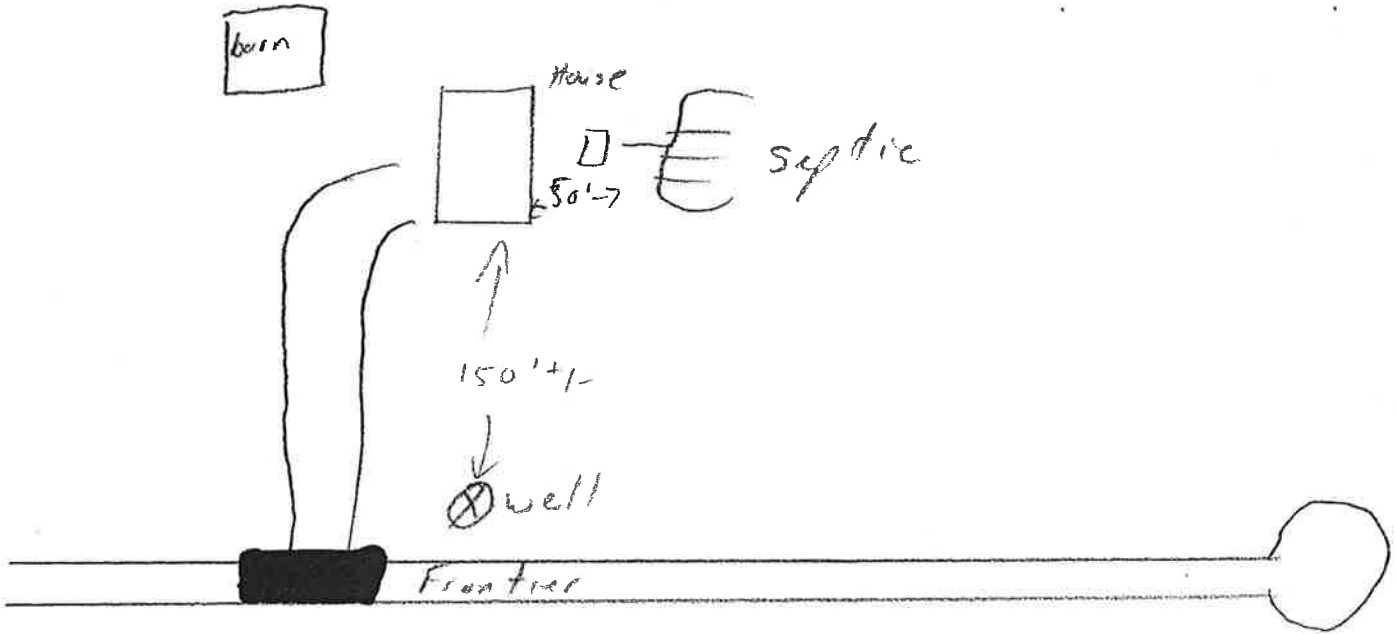 barn
House
Septic
50'
150' +/-
well
Frontier